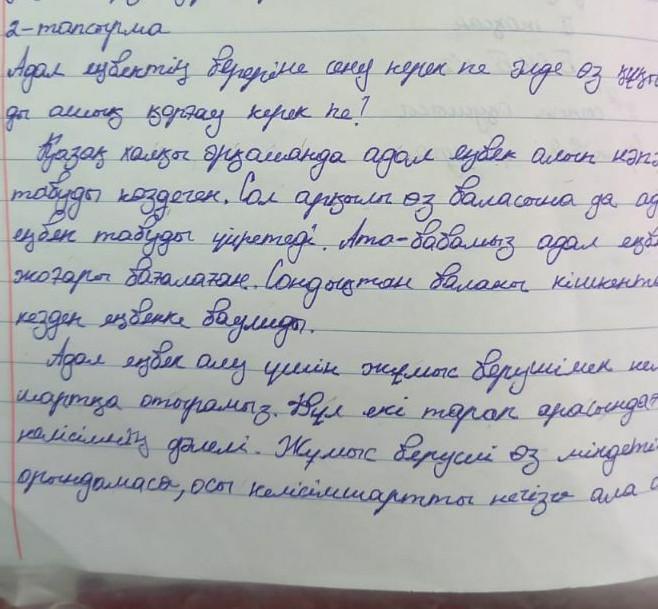 2-тапсырма
Адал еңбектің береріне сену керек пе әлде өз құқығ
ды ашық қорғау керек пе?
Қазақ халқы әрқашанда адал еңбек алып нәпа
табуды көздеген. Сол арқылы өз баласына да ад
еңбек табуды үйретеді. Ата-бабамыз адал еңбе
жоғары бағалаған. Сондықтан баланы кішкента
кезден еңбекке баулиды.
Адал еңбек алу үшін жұмыс берушімен кел
шартқа отырамыз. Бұл екі тарап арасындағ
келісімнің дәлелі. Жұмыс беруші өз міндеті
орындамаса, осы келісімшартты негізге ала о